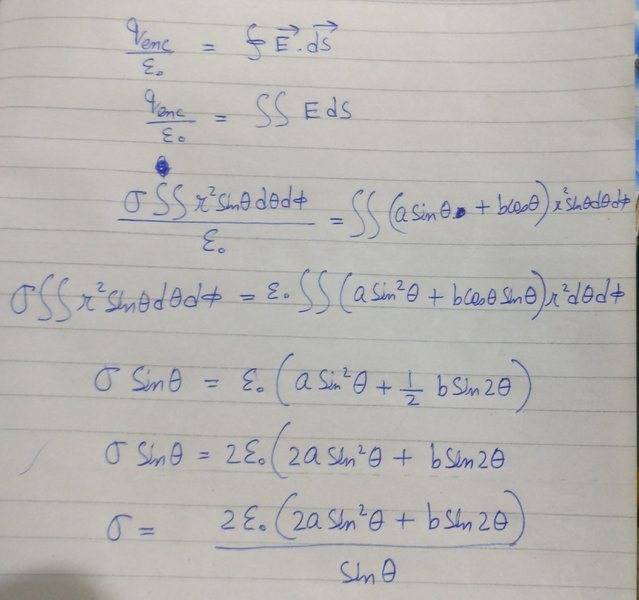 q_enc/ε₀ = ∮ E⃗ . ds⃗
q_enc/ε₀ = ∬ E ds
σ ∬ r² sinθ dθ dϕ / ε₀ = ∬ (a sinθ + b cosθ) r² sinθ dθ dϕ
σ ∬ r² sinθ dθ dϕ = ε₀ ∬ (a sin²θ + b cosθ sinθ) r² dθ dϕ
σ sinθ = ε₀ (a sin²θ + 1/2 b sin2θ)
σ sinθ = 2ε₀ (2a sin²θ + b sin2θ
σ = 2ε₀ (2a sin²θ + b sin2θ) / sinθ